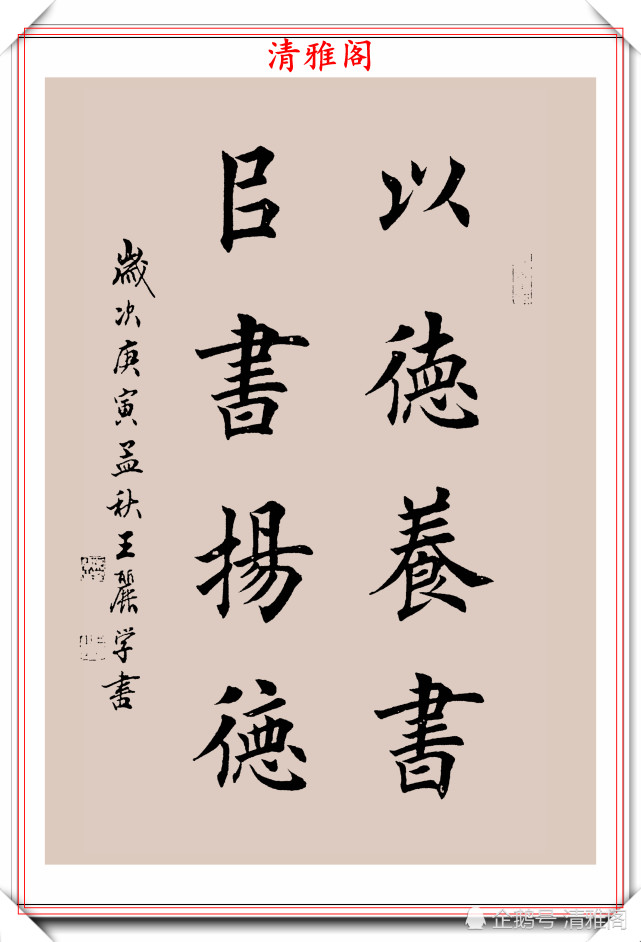 清雅阁
以德養書
㠯書揚德
歲次庚寅孟秋王麗学書
企鹅号 清雅阁